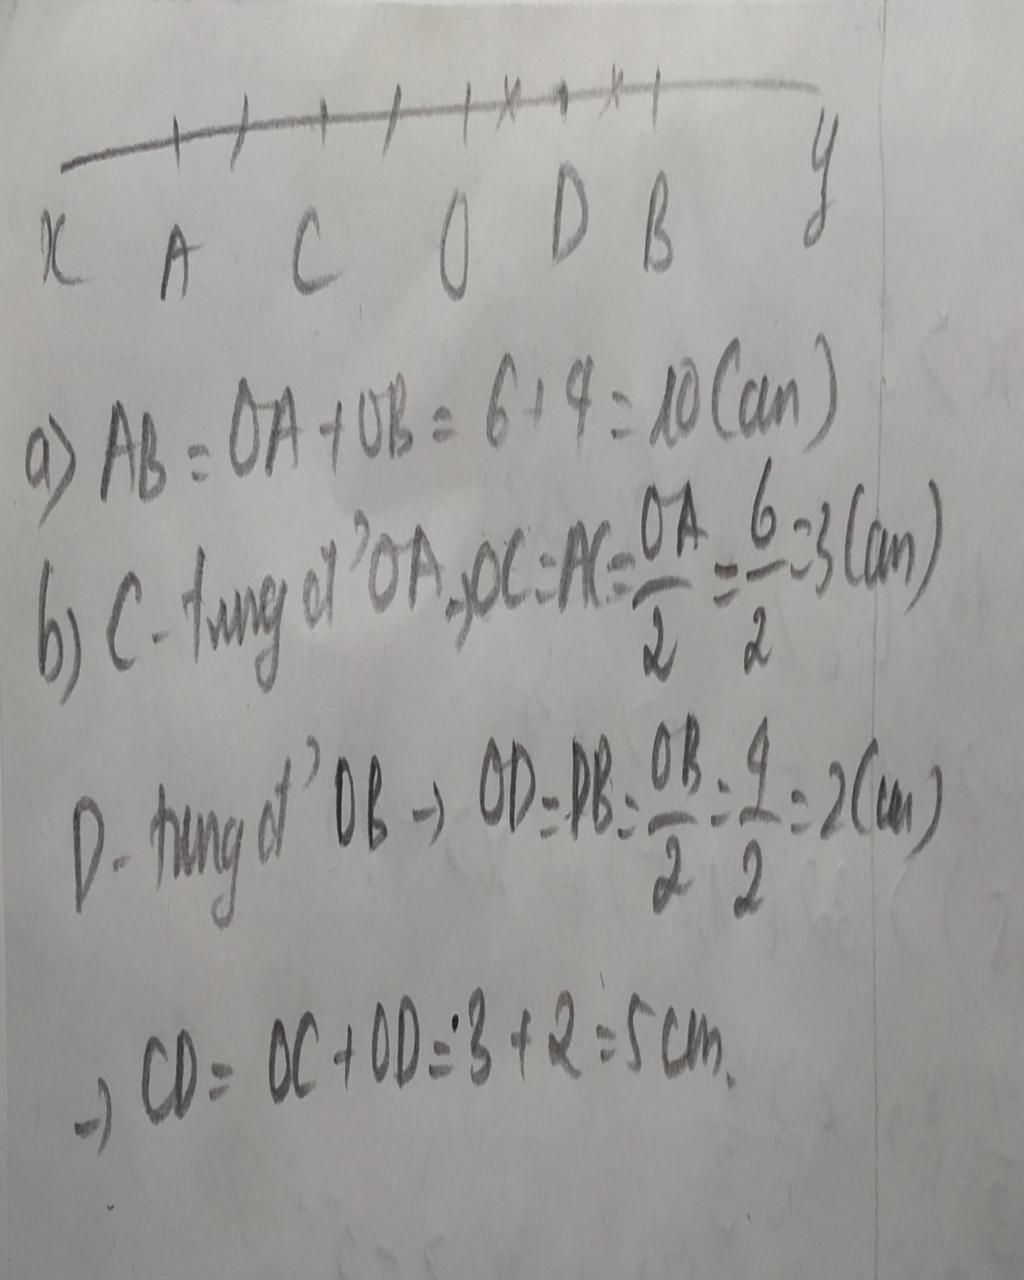 x A C O D B y
a) AB = OA + OB = 6 + 4 = 10 (cm)
b) C - trung đ' OA → OC = AC = OA/2 = 6/2 = 3 (cm)
D - trung đ' OB → OD = DB = OB/2 = 4/2 = 2 (cm)
→ CD = OC + OD = 3 + 2 = 5 cm.